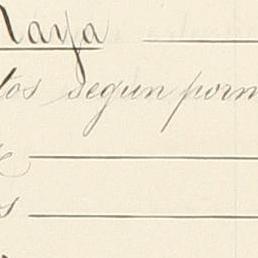 Raya
tos segun porm
s